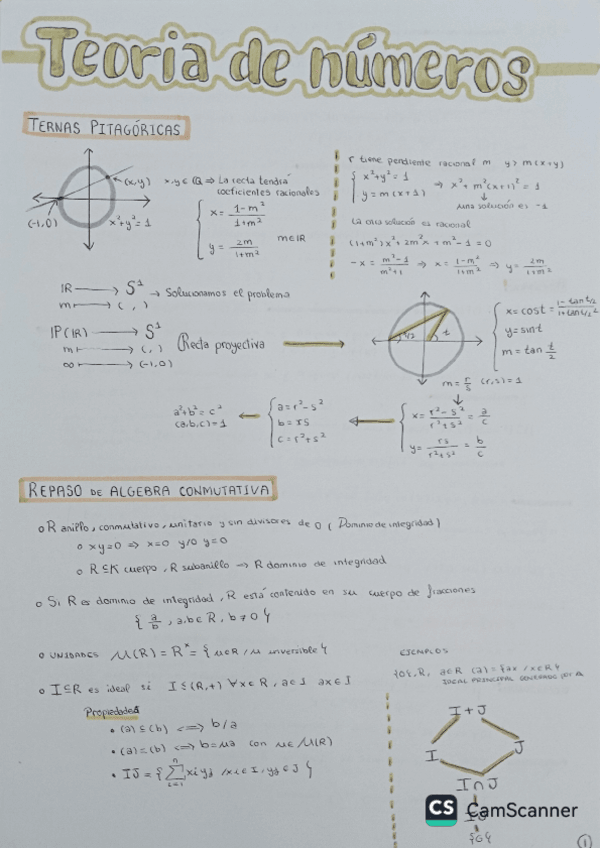 Teoria de números
TERNAS PITAGÓRICAS
(x,y)
(-1,0)
x²+y²=1
x,y ∈ Q ⇒ La recta tendrá
coeficientes racionales
x = (1-m²)/(1+m²)
y = 2m/(1+m²)
m∈IR
r tiene pendiente racional m
x²+y²=1
y=m(x+1)
⇒ x²+m²(x+1)²=1
una solución es -1
La otra solución es racional
(1+m²)x²+2m²x+m²-1=0
-x = (m²-1)/(m²+1) ⇒ x = (1-m²)/(1+m²) ⇒ y = 2m/(1+m²)
IR ⟶ S¹ → Solucionamos el problema
m ⟼ ( , )
IP(IR) ⟶ S¹
m ⟼ ( , )
∞ ⟼ (-1,0)
Recta proyectiva
t/2
t
x=cost = (1-tan t/2)/(1+tan² t/2)
y=sint
m=tan t/2
m = r/s (r,s)=1
x = (r²-s²)/(r²+s²) = a/c
y = rs/(r²+s²) = b/c
a=r²-s²
b=rs
c=r²+s²
a²+b²=c²
(a,b,c)=1
REPASO DE ALGEBRA CONMUTATIVA
o R anillo, conmutativo, unitario y sin divisores de 0 (Dominio de integridad)
o xy=0 ⇒ x=0 y/o y=0
o R⊆K cuerpo, R subanillo → R dominio de integridad
o Si R es dominio de integridad, R está contenido en su cuerpo de fracciones
{ a/b, a,b∈R, b≠0 }
o UNIDADES μ(R)=R*={ u∈R / u inversible }
o I⊆R es ideal si I≤(R,+) ∀x∈R, a∈I ax∈I
Propiedades
• (a)⊆(b) ⟺ b/a
• (a)=(b) ⟺ b=ua con u∈μ(R)
• IJ = { Σⁿᵢ₌₁ xiyj /xi∈I, yj∈J }
EJEMPLOS
{0}, R, a∈R (a)={ax /x∈R}
IDEAL PRINCIPAL
I+J
I
J
I∩J
{0}
CS CamScanner
1